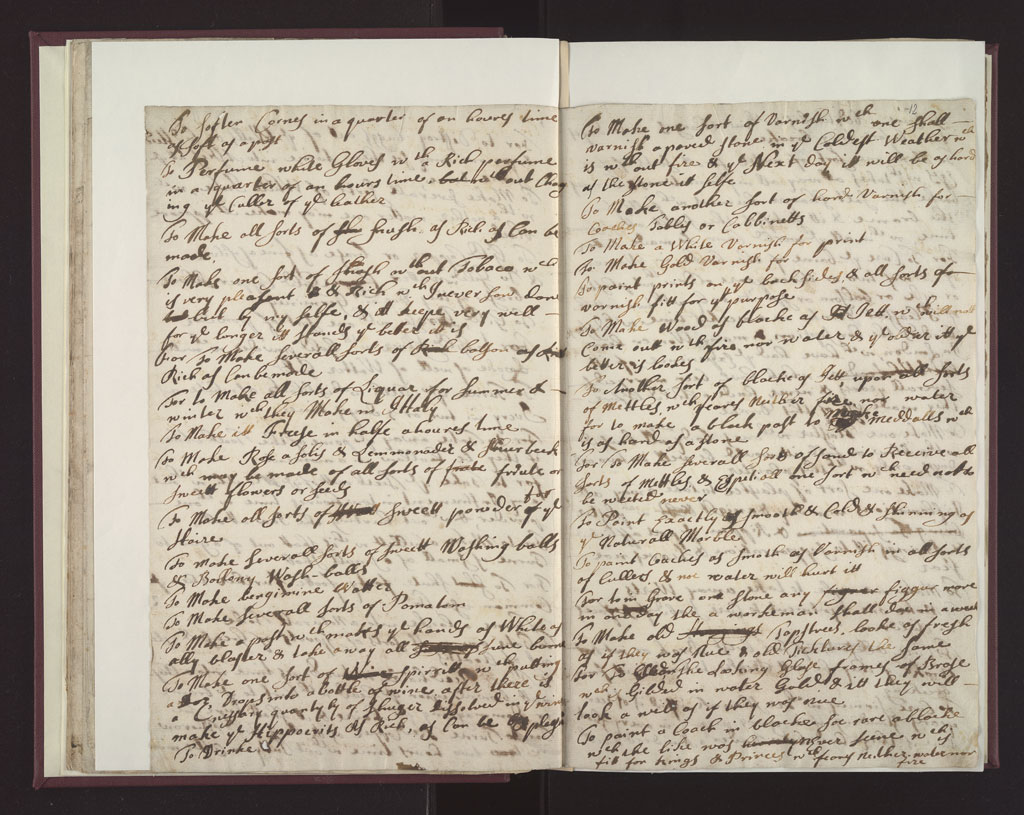 To softer Cornes in a quarter of an houres time
as soft as a post
To Perfume white Gloves wth a Rich perfume
in a quarter of an hours time but wthout Chan
ing ye Culler of ye leather
To Make all sorts of snush as Rich as Can be
made
To Make one sort of snush wthout Tobaco wch
is very pleasant & Rich wch I never saw don
but by my selfe, & itt keeps very well
for ye longer itt stands ye beter it is
for To Make severall sorts of balson as
Rich as Can be made
for to Make all sorts of Liquar for summer &
winter wch they Make in Ittaly
To Make itt Freese in halfe a houres time
To Make Rosa solis & Lemmonades & sherbeck
wch may be made of all sorts of frute or
sweett flowers or seeds
To Make all sorts of sweett powder for ye
Haire
To make severall sorts of sweett Washing balls
& Wash-balls
To Make bengimine Watter
To Make severall sorts of Pomatom
To Make a past wch makes ye hands as White as
ally blaster & take away all sune burne
To Make one sort of spirritt wch putting
a Drops into a bottle of wine after there is
a quantyty of shuger dissolved in ye wine
make ye Hippocrits as Rich, as Can be
To Drinke
12
To Make one sort of Varnish wch one shall
varnish a paved stone in ye Coldest Weather wch
is wthout fire & ye Next day it will be as hard
as the stone itt selfe
To Make another sort of hard Varnish for
Coaches Tables or Cabbinetts
To Make a White Varnish for print
To Make Gold Varnish for
To paint prints on ye back sides, & all sorts of
varnish fitt for ye purpose
To Make Wood as blacke as Jett wch will not
Come out wth fire nor water & ye older itt ye
better it lookes
To Another sort of blacke as Jett upon all sorts
of Mettles, wch feares Neither fire nor water
for to make a black past to Make Meddalls wch
is as hard as a stone
for To Make severall sorts of sand to Receive all
sorts of Mettles & Espetiall one sort wch need not to
be weited never
To Paint Exactly as smooth & Cold & shinning as
ye Naturall Marble
To paint Coaches as smoth as Varnish in all sorts
of Cullers & noe water will hurt itt
for to Grave one stone any figgur more
in one day the a workeman shall doe in a week
To Make old Tapstrees, looke as fresh
as if they ware Nue & old Picktures the same
for To Clean the Looking Glase frames or Brase
wch Gilded in water Gold & itt they will
look a well as if they ware nue
To paint a Coach in blacke soe rare a blacke
wch the like was never seene wch is
fitt for Kings & Princes wch feares neither water nor
fire